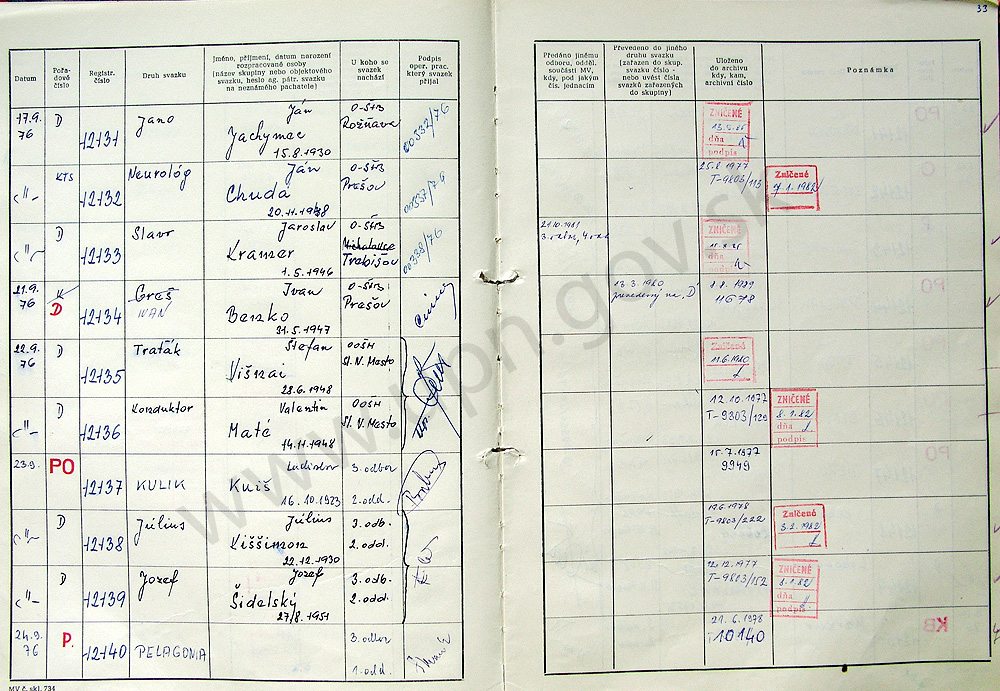 33
Datum
Pořadové číslo
Registr. číslo
Druh svazku
Jméno, příjmení, datum narození
rozpracované osoby
(název skupiny nebo objektového
svazku, heslo ag. pátr. svazku
na neznámého pachatele)
U koho se
svazek
nachází
Podpis
oper. prac.
který svazek
přijal
Předáno jinému
odboru, odděl.
součásti MV,
kdy, pod jakým
čís. jednacím
Převedeno do jiného
druhu svazku
(zařazen do skup.
svazku číslo -
nebo uvést čísla
svazků zařazených
do skupiny)
Uloženo
do archivu
kdy, kam,
archivní číslo
Poznámka
17.9. 76 D 12131 Jano Ján Jachymec 15.8.1930 O-ŠtB Rožňava 00532/76
ZNIČENÉ
dňa
podpis
-"- KTS 12132 Neurológ Ján Chuda 20.11.1948 O-ŠtB Prešov
25.8.1977 T-9803/113
Zničené 7.1.1982
-"- D 12133 Slavo Jaroslav Kramer 1.5.1946 O-ŠtB Michalovce Trebišov 00338/76
21.10.1981
ZNIČENÉ
dňa
podpis
21.9. 76 K D 12134 Greš IVAN Ivan Benko 31.5.1947 O-ŠtB Prešov
13.3.1980 prevedený na "D"
22.9. 76 D 12135 Traťák Štefan Višnai 28.6.1948 OOŠH Sl. N. Mesto
Zničené 11.6.1980
-"- D 12136 Konduktor Valentin Maté 14.11.1948 OOŠH Sl. N. Mesto
12.10.1977 T-9303/129
ZNIČENÉ
8.1.82
dňa
podpis
23.9. PO 12137 KULIK Ladislav Kuiš 16.10.1923 3. odbor 2. odd.
15.7.1977 9949
-"- D 12138 Július Július Kiššimon 22.12.1930 3. odb. 2. odd.
19.6.1978 T-9803/222
Zničené 3.2.1982
-"- D 12139 Jozef Jozef Šidelský 27/8.1951 3. odb. 2. odd.
12.12.1977 T-9803/152
ZNIČENÉ
8.1.82
dňa
podpis
24.9. 76 P. 12140 PELAGONIA 3. odbor 1. odd.
21.6.1978 10140
MV č. skl. 734
www.upn.gov.sk